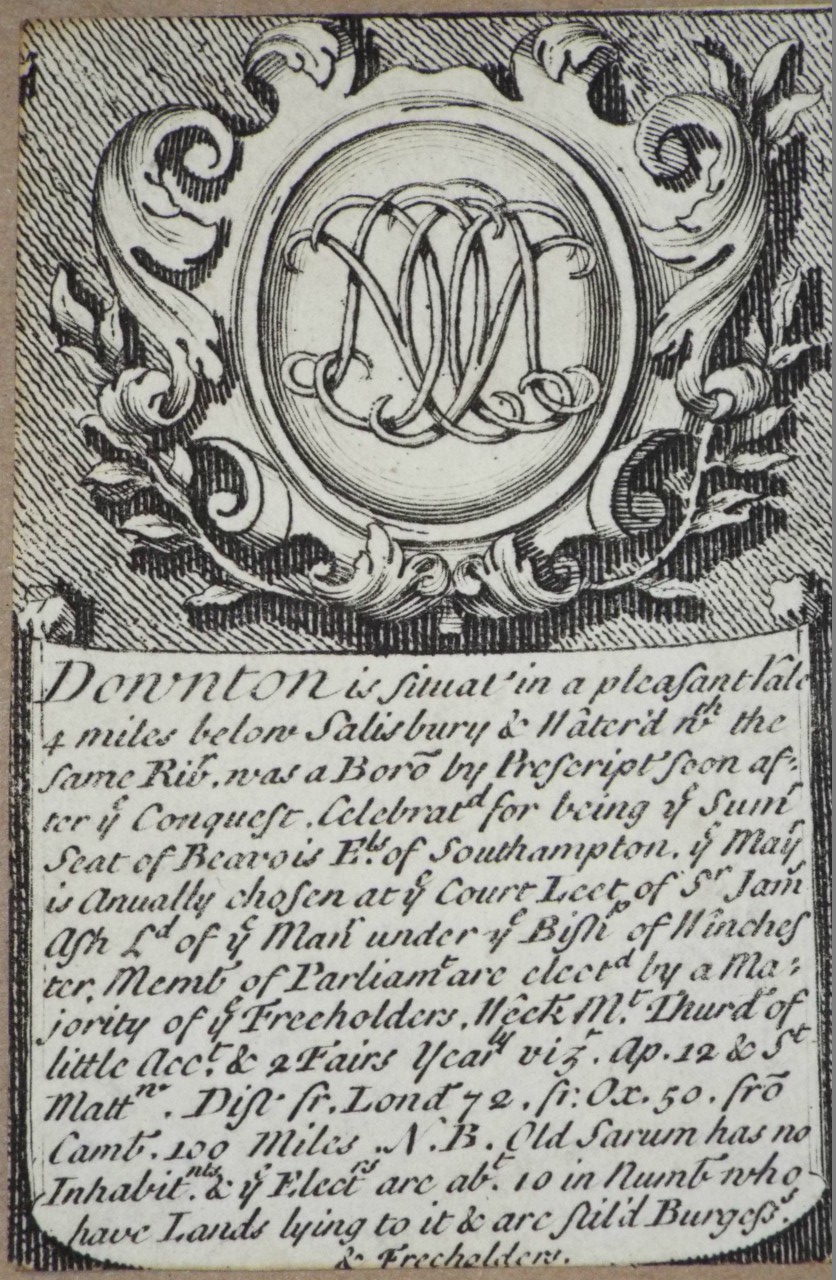 Downton is situat' in a pleasant Vale
4 miles below Salisbury & Wāter'd wᵗʰ the
same Riv̄. was a Borō by Prescript' soon af-
ter yᵉ Conquest. Celebratᵈ for being yᵉ Sum̄
Seat of Beavois Eˡˢ. of Southampton. yᵉ Mayʳ
is Anually chosen at yᵉ Court Leet of Sʳ Jam̄
Ash Lᵈ of yᵉ Man̄ under yᵉ Bishᵖ of Winches
ter. Memb̄ of Parliamᵗ are electᵈ by a Ma-
jority of yᵉ Freeholders. Wēek Mᵗ. Thurdˢ of
little Accᵗ. & 2 Fairs Yearˡʸ vizᵗ. Ap. 12 & Sᵗ
Mattʷ. Dist fr. Lond̄ 72. fr. Ox. 50. frō
Camb̄. 100 Miles. N.B. Old Sarum has no
Inhabitⁿᵗˢ. & yᵉ Electʳˢ are abᵗ. 10 in Numb̄ who
have Lands lying to it & are stil'd Burgessˢ.
& Freeholders.